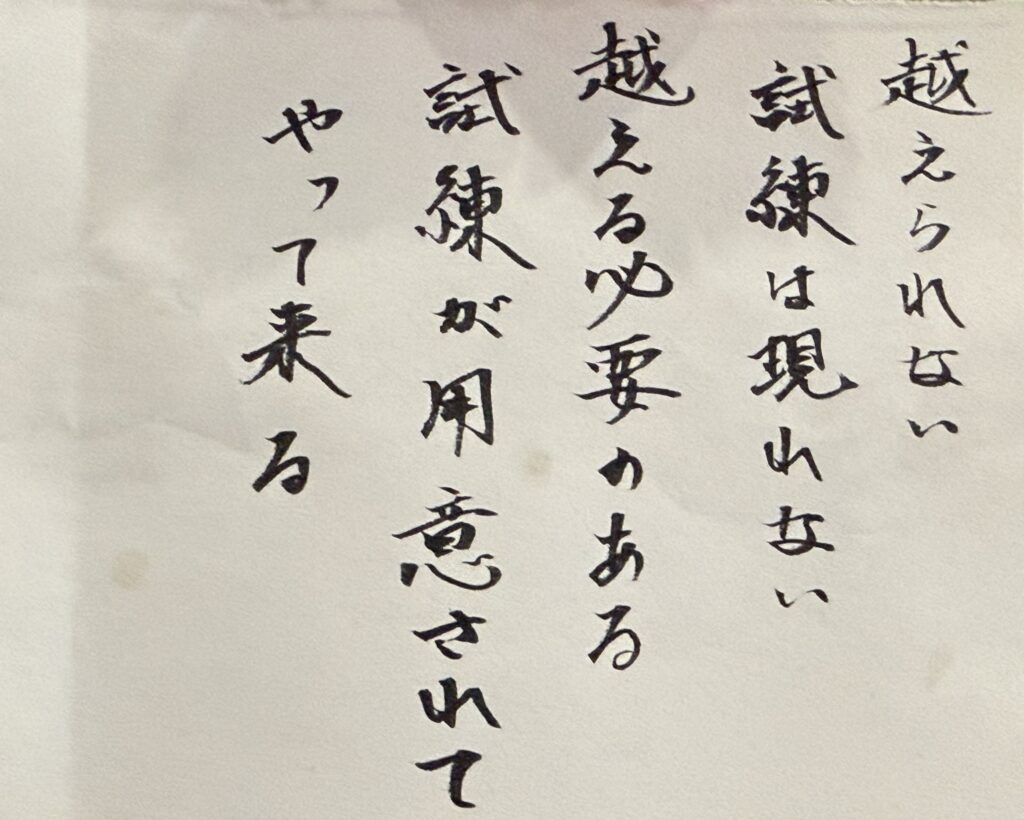 越えられない
試練は現れない
越える必要のある
試練が用意されて
やって来る